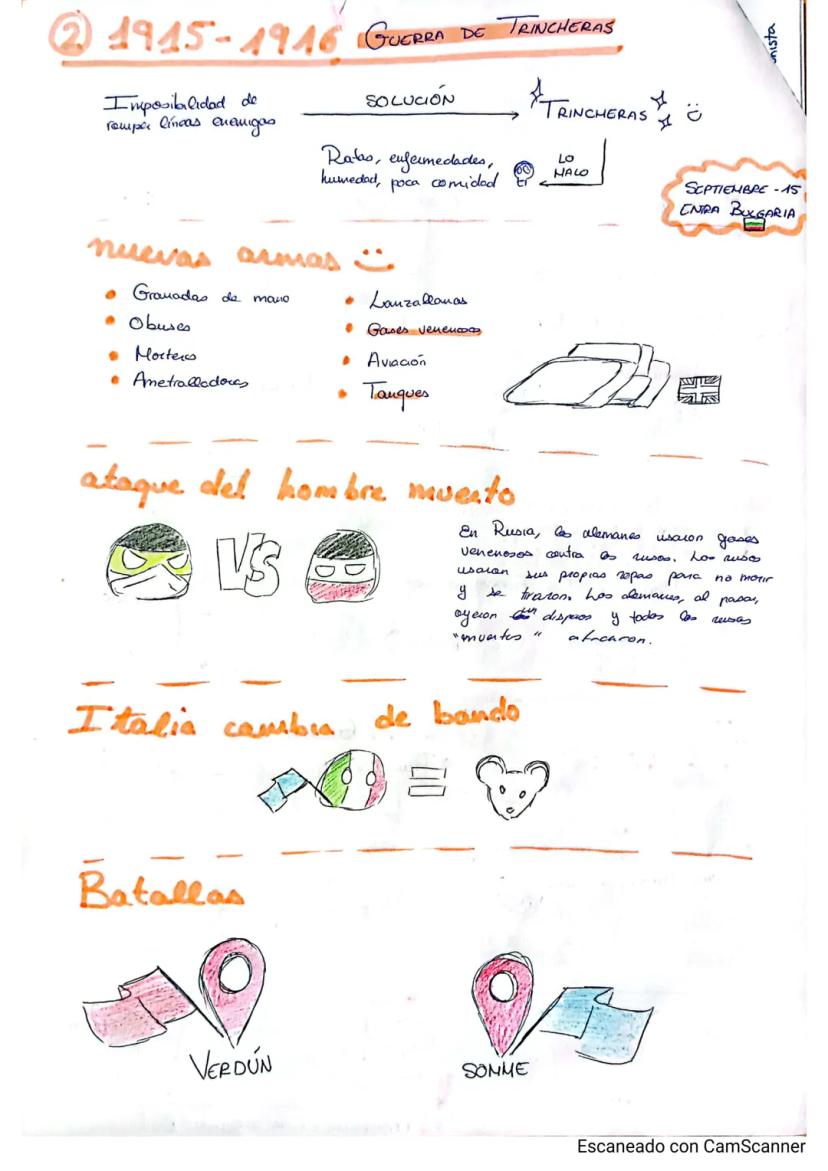 ② 1915-1916 GUERRA DE TRINCHERAS
nista
Imposibilidad de
romper líneas enemigas
SOLUCIÓN
TRINCHERAS :)
Ratas, enfermedades,
humedad, poca comidad
LO
MALO
SEPTIEMBRE - 15
ENTRA BULGARIA
nuevas armas :)
• Granadas de mano
• Obuses
• Morteros
• Ametralladoras
• Lanzallamas
• Gases venenosos
• Aviación
• Tanques
ataque del hombre muerto
VS
En Rusia, los alemanes usaron gases
venenosos contra los rusos. Los rusos
usaron sus propias ropas para no morir
y se tiraron. Los alemanes, al pasar,
oyeron un disparo y todos los rusos
"muertos" atacaron.
Italia cambia de bando
=
Batallas
VERDÚN
SOMME
Escaneado con CamScanner